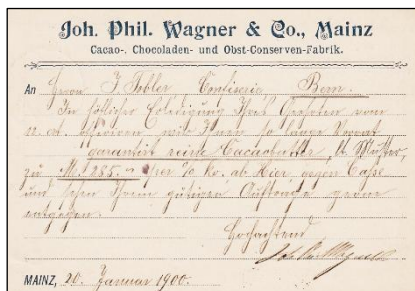 Joh. Phil. Wagner & Co., Mainz
Cacao-, Chocoladen- und Obst-Conserven-Fabrik.
An Herrn J. Tobler Confiserie Bern.
In höflicher Erledigung Ihres Geehrten vom
12. ct. offeriren wir Ihnen so lange Vorrat
garantirt reine Cacaobutter, Muster,
zu M. 285.- per % Ko. ab hier, gegen Casse
und sehen Ihrem gütigen Auftrage gerne
entgegen.
Hochachtend
MAINZ, 20. Januar 1900.